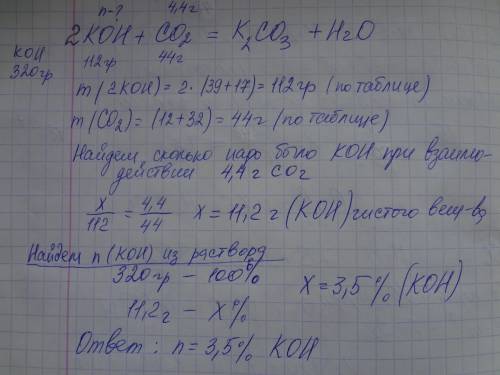 n-? 4,4г
2KOH + CO2 = K2CO3 + H2O
KOH 320гр
112гр 44г
m(2KOH) = 2·(39+17) = 112гр (по таблице)
m(CO2) = (12+32) = 44г (по таблице)
Найдем, сколько надо было KOH при взаимо-
действии 4,4г CO2
x/112 = 4,4/44 x = 11,2г (KOH) чистого вещ-ва
Найдем n(KOH) из раствора
320гр – 100%
11,2г – X%
X = 3,5% (KOH)
Ответ: n = 3,5% KOH